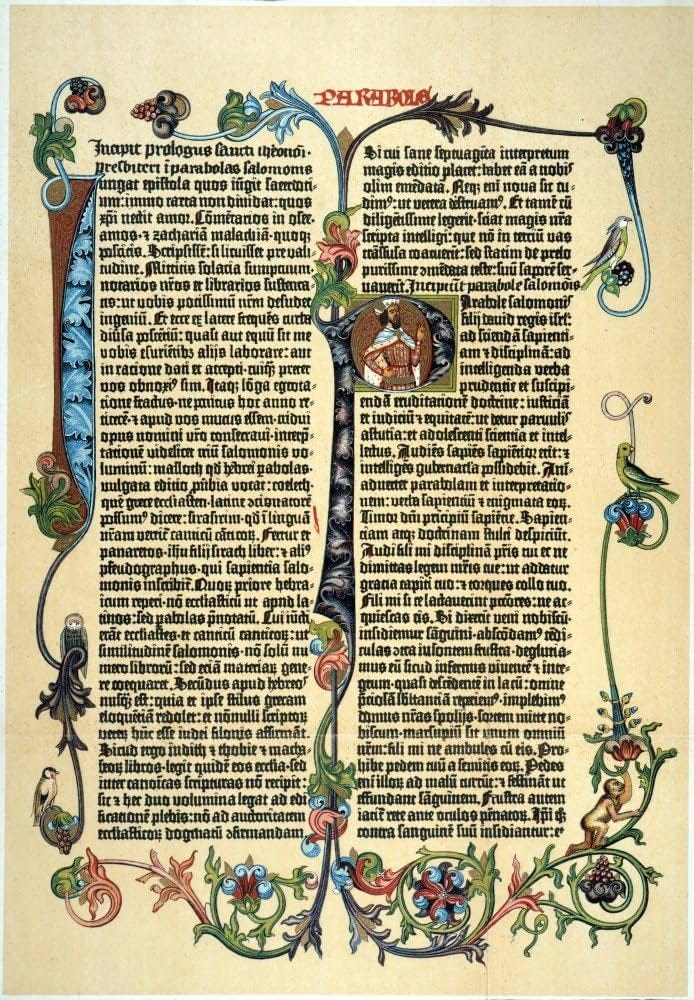 PARABOLE
Incipit prologus sancti iheronimi
presbiteri ī parabolas salomonis
Iungat epistola quos iūgit sacerdoti-
um: immo carta non diuidat: quos
xp̄i nectit amor. Cōmētarios in osee.
amos. ⁊ zachariā malachiā. quoq;
poscitis. Scripsissē: si licuisset pre vali-
tudine. Mittitis solacia sumptuum.
notarios nr̄os et librarios sustenta-
tis: ut vobis potissimū nr̄m desudet
ingeniū. Et ecce ex latere frequēs turba
diūsa poscētiū: quasi aut equū sit me
vobis esuriētibȝ alijs laborare: aut
in racione dati et accepti. cuiq̄; preter
vos obnoxiꝰ sim. Itaq; lōga egrota-
tione fractus. ne penitus hoc anno re-
ticerē. ⁊ apud vos mutus essem. tridui
opus nomini vr̄o consecraui. interp̄-
tationē videlicet triū salomonis vo-
luminū: masloth qd̄ hebrei pabolas.
vulgata editio ꝓūbia vocat: coeleth.
quē grece ecclīasten. latine ↄcionatorē
possumꝰ dicere: sirasirim. qd̄ ī linguā
nr̄am vertit̄ canticū cāticoꝝ. Fertur et
panaretos. ihū filij sirach liber: ⁊ aliꝰ
pseudographus. qui sapientia salo-
monis inscribit̄. Quoꝝ priore hebra-
icum reperi. nō ecclīasticū ut apud la-
tinos: sed pabolas p̄notatū. Cui iūcti
erāt ecclīastes. et canticū canticoꝝ: ut
similitudinē salomonis. nō solū nu-
mero librorū: sed eciā materiaꝝ gene-
re coequaret. Secūdus apud hebreos
nusꝗ̄ est: quia et ipse stilus grecam
eloquētiā redolet: et nōnulli scriptoꝝ
vetez hūc esse iudei filonis affirmāt.
Sicud ergo iudith ⁊ thobie ⁊ macha-
beoꝝ libros. legit quidē eos ecclīa. sed
inter canoīcas scripturas nō recipit:
sic ⁊ hec duo volumina legat ad edi-
ficationē plebis: nō ad auctoritatem
ecclīasticoꝝ dogmatū ↄfirmandam.
Si cui sane septuagīta interpretum
magis editio placet: habet eā a nobis
olim emēdatā. Neq; enī noua sic cu-
dimꝰ: ut vetera destruamꝰ. Et tamē cū
diligētissime legerit. sciat magis nr̄a
scripta intelligi: que nō in terciū vas
trāsfusa coacuerīt: sed statim de prelo
purissime ↄmēdata teste: suū saporē ser-
uauerīt. Incipiūt parabole salomōis
Parabole salomonis
filij dauid regis isrl̄:
ad sciendā sapienti-
am ⁊ disciplinā: ad
intelligenda verba
prudentie et suscipi-
endā eruditationē doctrine: iusticiā
et iudiciū ⁊ equitatē: ut detur paruulis
astutia: et adolescenti scientia et intel-
lectus. Audiēs sapiēs sapiētior erit: ⁊
intelligēs gubernacla possidebit. Ani-
aduertet parabolam et interpretatio-
nem: verba sapientiū ⁊ enigmata eoꝝ.
Timor dn̄i principiū sapiētie. Sapien-
tiam atq; doctrinam stulti despiciūt.
Audi fili mi disciplinā pr̄is tui et ne
dimittas legem mr̄is tue: ut addatur
gracia capiti tuo: ⁊ torques collo tuo.
Fili mi si te lactauerint pctōres: ne ac-
quiescas eis. Si dixerīt veni nobiscū:
insidiemur sāguini. abscōdamꝰ tēdi-
culas ↄtra insontem frustra. deglutia-
mus eū sicud infernus viuentē ⁊ inte-
grum. quasi descēdentē in lacū: omnē
p̄ciosā sb̄stanciā reperiemꝰ. implebimꝰ
domus nr̄as spolijs. sortem mitte no-
biscum. marsupiū sit vnum omniū
nr̄m: fili mi ne ambules cū eis. Pro-
hibe pedem tuū a semitis eoꝝ. Pedes
enī illoꝝ ad malū currūt: ⁊ festināt ut
effundant sāguinem. Frustra autem
iacit̄ rete ante oculos pēnatoꝝ. Ip̄i q̄;
contra sanguinē suū insidiantur: et